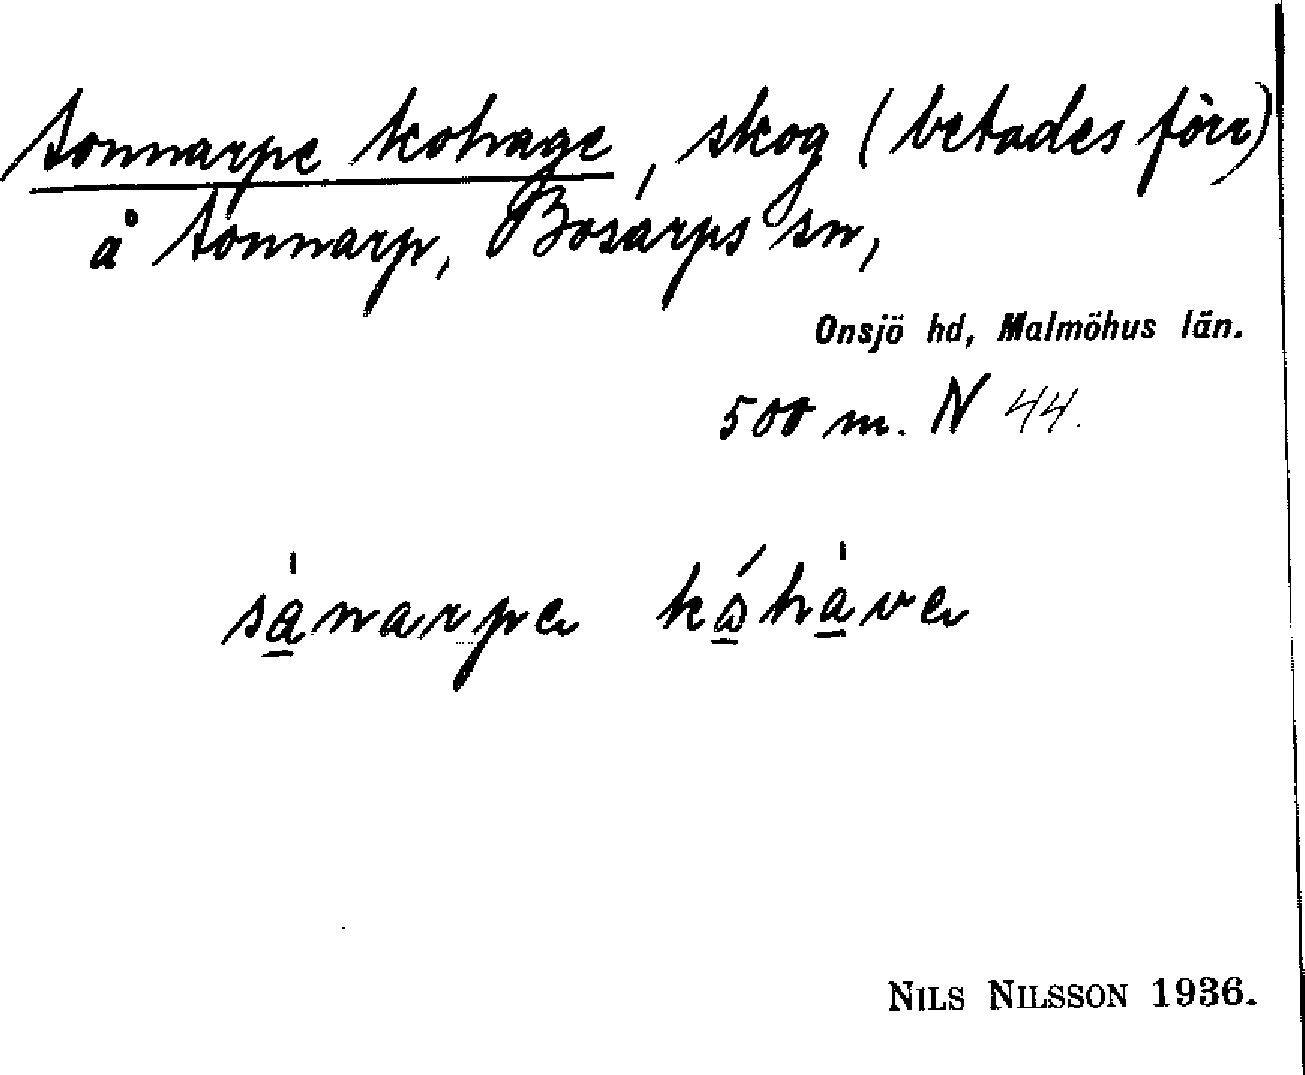 Sonnarpe kohage, skog (betades förr)
å Sonnarp, Bosarps sn,
Onsjö hd, Malmöhus län.
500 m. N 44.
sånarpe kåhave
NILS NILSSON 1936.